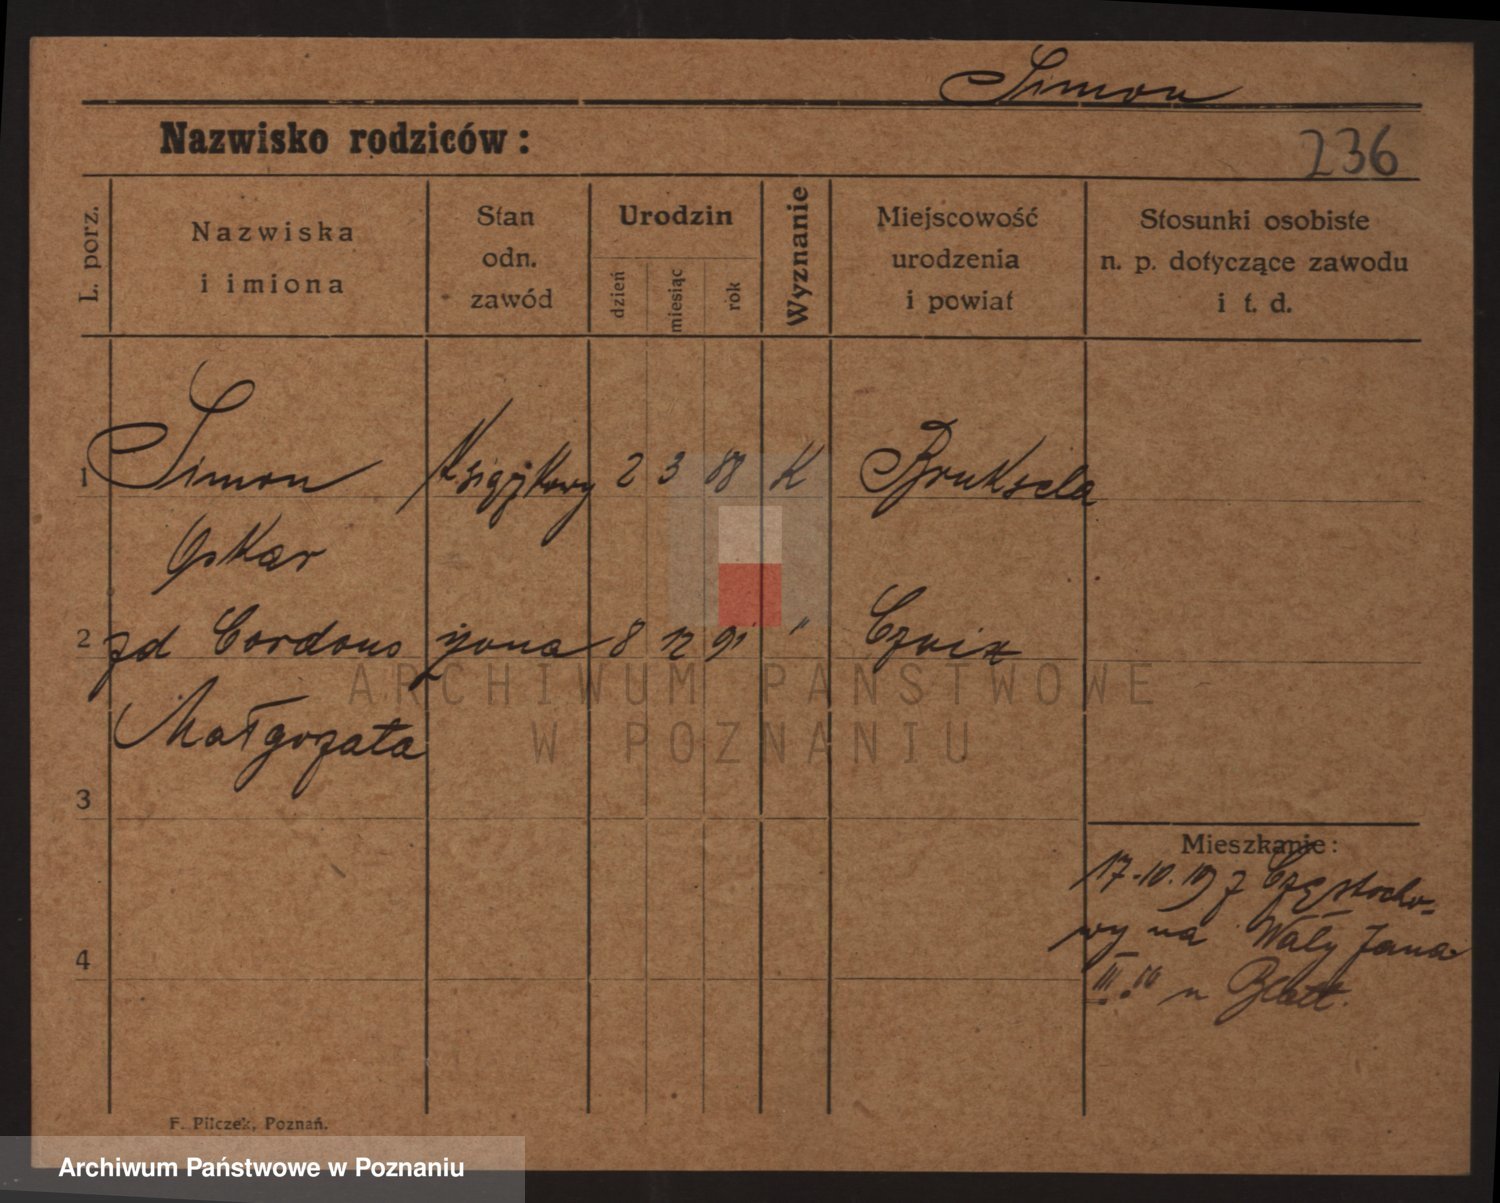 Simon
Nazwisko rodziców:
236
L. porz.
Nazwiska
i imiona
Stan
odn.
zawód
Urodzin
dzień
miesiąc
rok
Wyznanie
Miejscowość
urodzenia
i powiat
Stosunki osobiste
n. p. dotyczące zawodu
i t. d.
1 Simon Księżkowy 2 3 88 K Bruksela
Oskar
2 zd żona 8 12 91 "
Małgorzata
3
Mieszkanie:
17-10. 19 z Częstocho-
wy na Wały Jana
4
III
ARCHIWUM PAŃSTWOWE
W POZNANIU
F. Pilczek, Poznań.
Archiwum Państwowe w Poznaniu